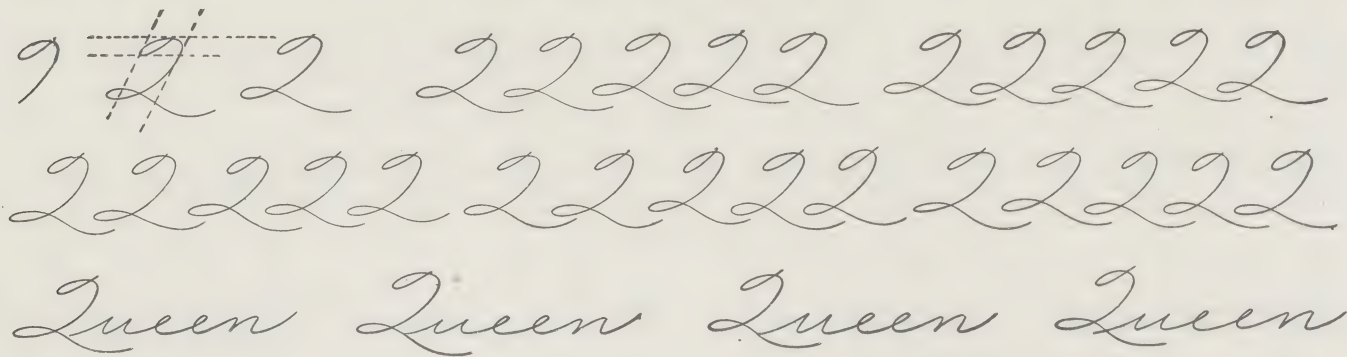 Q Q QQQQQ QQQQQ
QQQQQ QQQQQ QQQQQ
Queen Queen Queen Queen